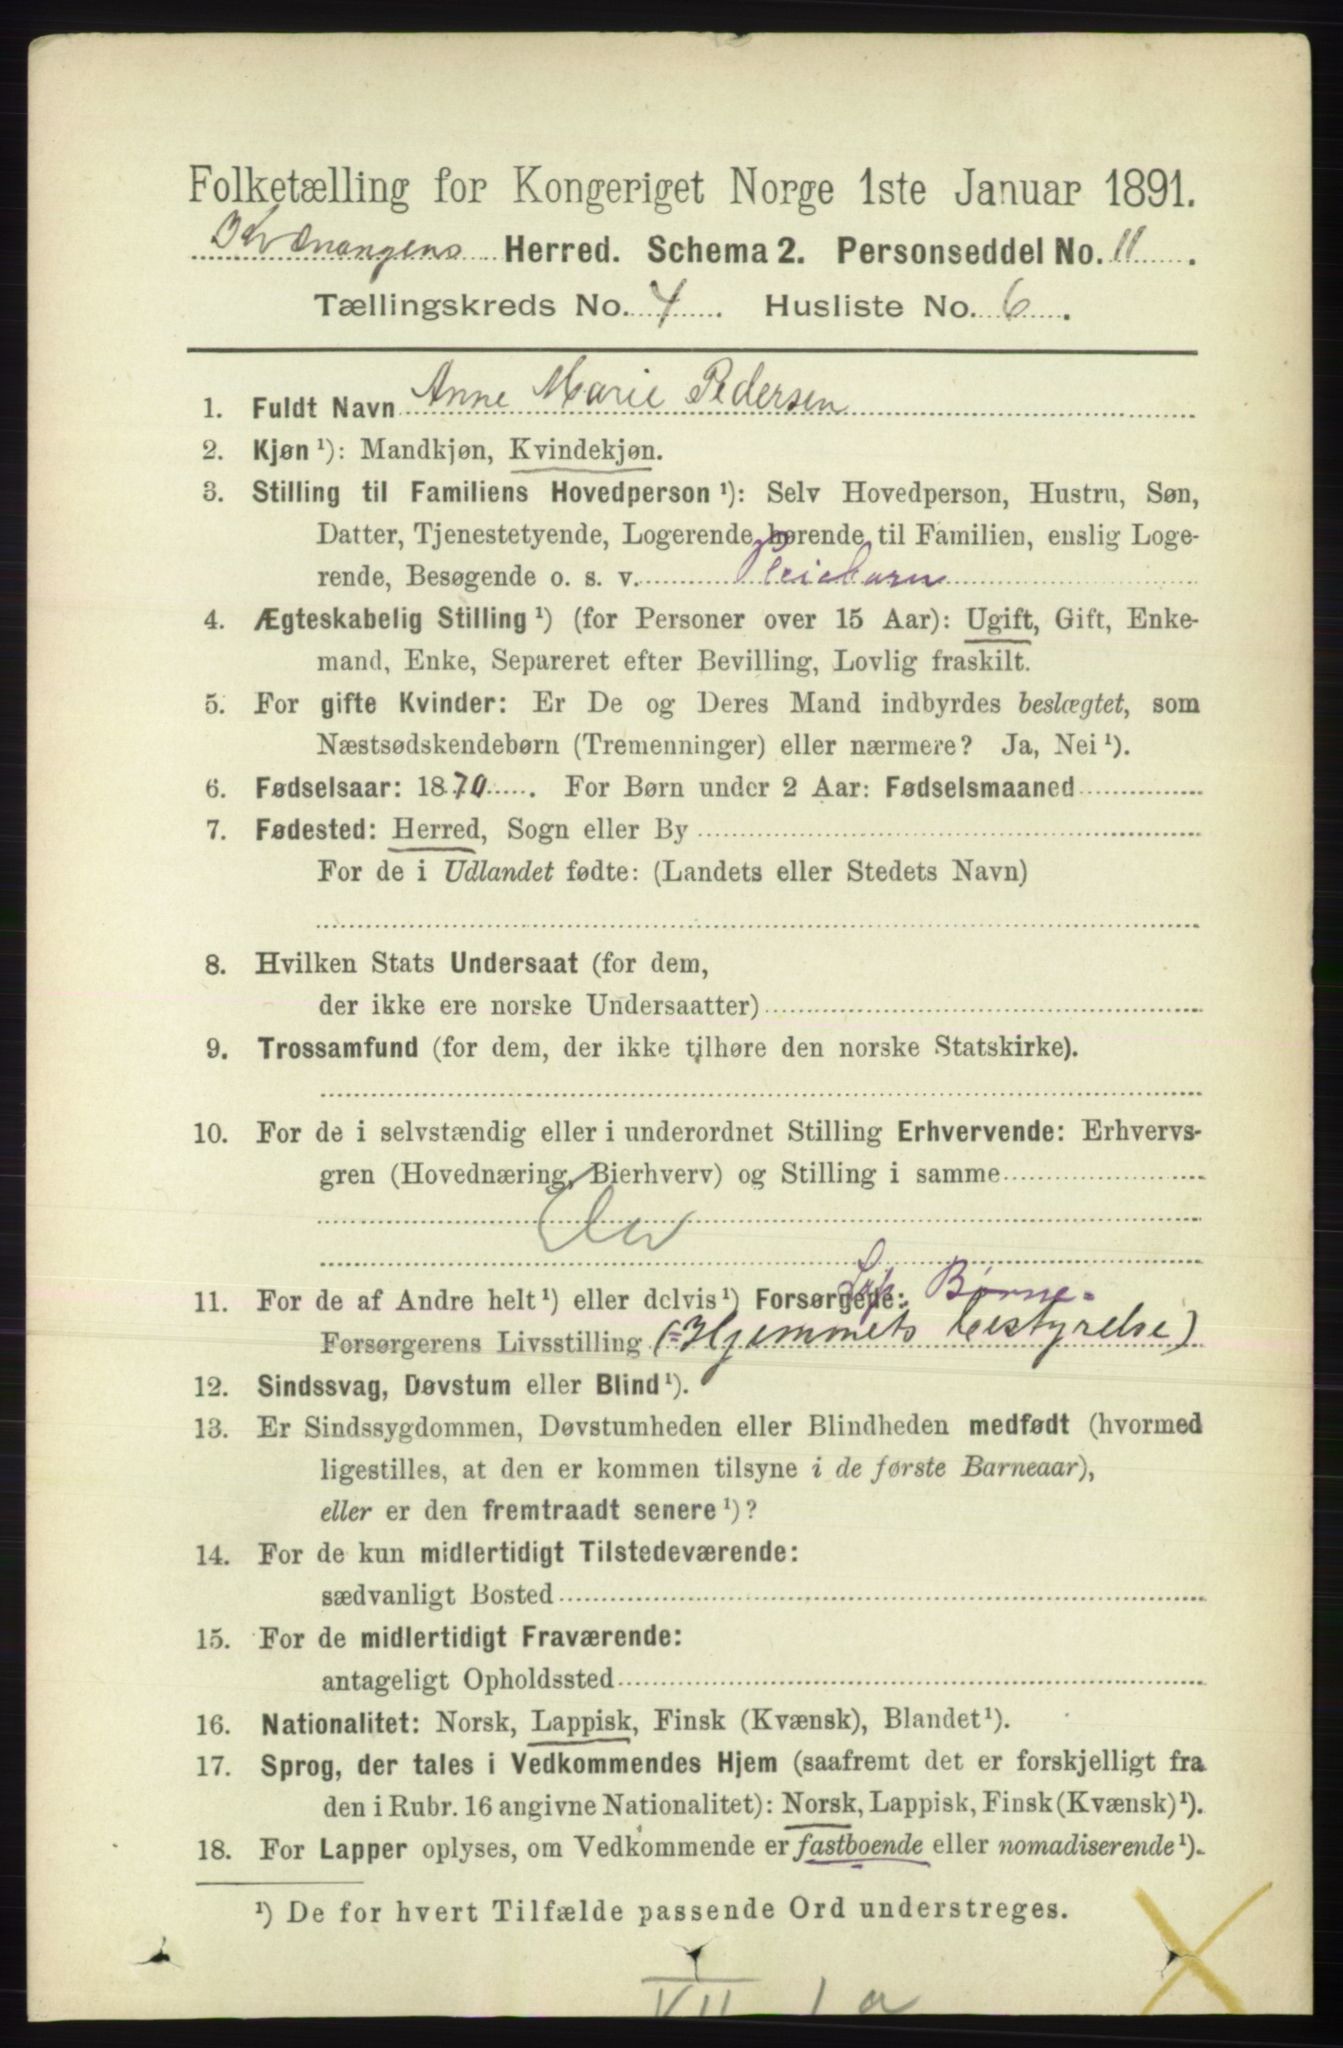 Folketælling for Kongeriget Norge 1ste Januar 1891.
Kvænangens Herred. Schema 2. Personseddel No. 11.
Tællingskreds No. 4. Husliste No. 6.
1. Fuldt Navn Anne Marie Pedersen
2. Kjøn ¹): Mandkjøn, Kvindekjøn.
3. Stilling til Familiens Hovedperson ¹): Selv Hovedperson, Hustru, Søn,
Datter, Tjenestetyende, Logerende hørende til Familien, enslig Loge-
rende, Besøgende o. s. v. Pleiebarn
4. Ægteskabelig Stilling ¹) (for Personer over 15 Aar): Ugift, Gift, Enke-
mand, Enke, Separeret efter Bevilling, Lovlig fraskilt.
5. For gifte Kvinder: Er De og Deres Mand indbyrdes beslægtet, som
Næstsødskendebørn (Tremenninger) eller nærmere? Ja, Nei ¹).
6. Fødselsaar: 1870. For Børn under 2 Aar: Fødselsmaaned
7. Fødested: Herred, Sogn eller By
For de i Udlandet fødte: (Landets eller Stedets Navn)
8. Hvilken Stats Undersaat (for dem,
der ikke ere norske Undersaatter)
9. Trossamfund (for dem, der ikke tilhøre den norske Statskirke).
10. For de i selvstændig eller i underordnet Stilling Erhvervende: Erhvervs-
gren (Hovednæring, Bierhverv) og Stilling i samme
11. For de af Andre helt ¹) eller delvis ¹) Forsørgede: Børne-
Forsørgerens Livsstilling (=Hjemmets bestyrelse)
12. Sindssvag, Døvstum eller Blind ¹).
13. Er Sindssygdommen, Døvstumheden eller Blindheden medfødt (hvormed
ligestilles, at den er kommen tilsyne i de første Barneaar),
eller er den fremtraadt senere ¹)?
14. For de kun midlertidigt Tilstedeværende:
sædvanligt Bosted
15. For de midlertidigt Fraværende:
antageligt Opholdssted
16. Nationalitet: Norsk, Lappisk, Finsk (Kvænsk), Blandet ¹).
17. Sprog, der tales i Vedkommendes Hjem (saafremt det er forskjelligt fra
den i Rubr. 16 angivne Nationalitet): Norsk, Lappisk, Finsk (Kvænsk) ¹).
18. For Lapper oplyses, om Vedkommende er fastboende eller nomadiserende ¹).
¹) De for hvert Tilfælde passende Ord understreges.
VII 1 a